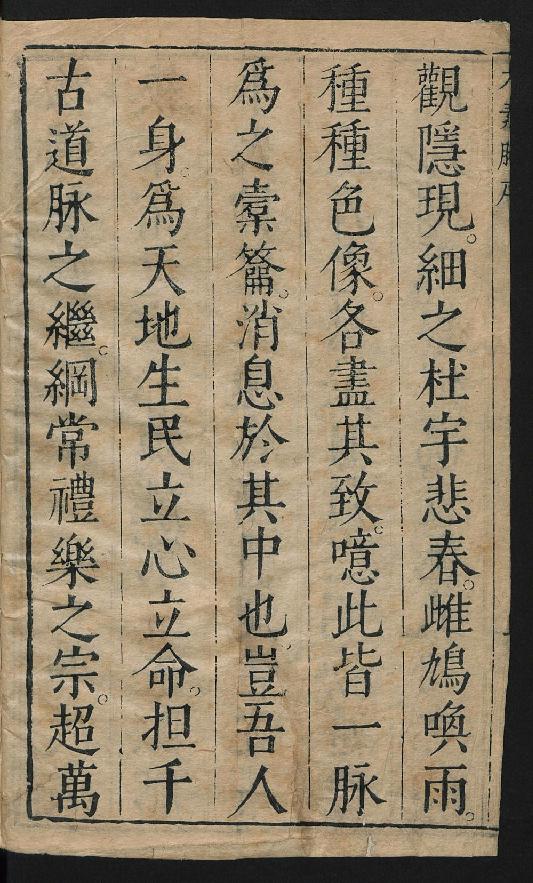 觀隱現。細之杜宇悲春。雌鳩喚雨。
種種色像。各盡其致。噫此皆一脉
爲之橐籥。消息於其中也。豈吾人
一身。爲天地生民立心立命。担千
古道脉之繼。綱常禮樂之宗。超萬